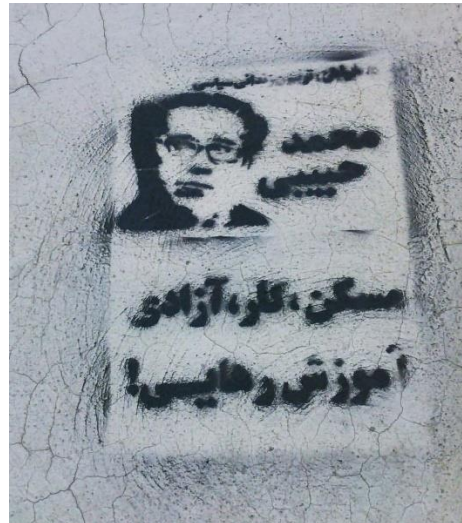 سیاسی
محمد
حبیبی
مسکن، کار، آزادی
آموزش رهایی!